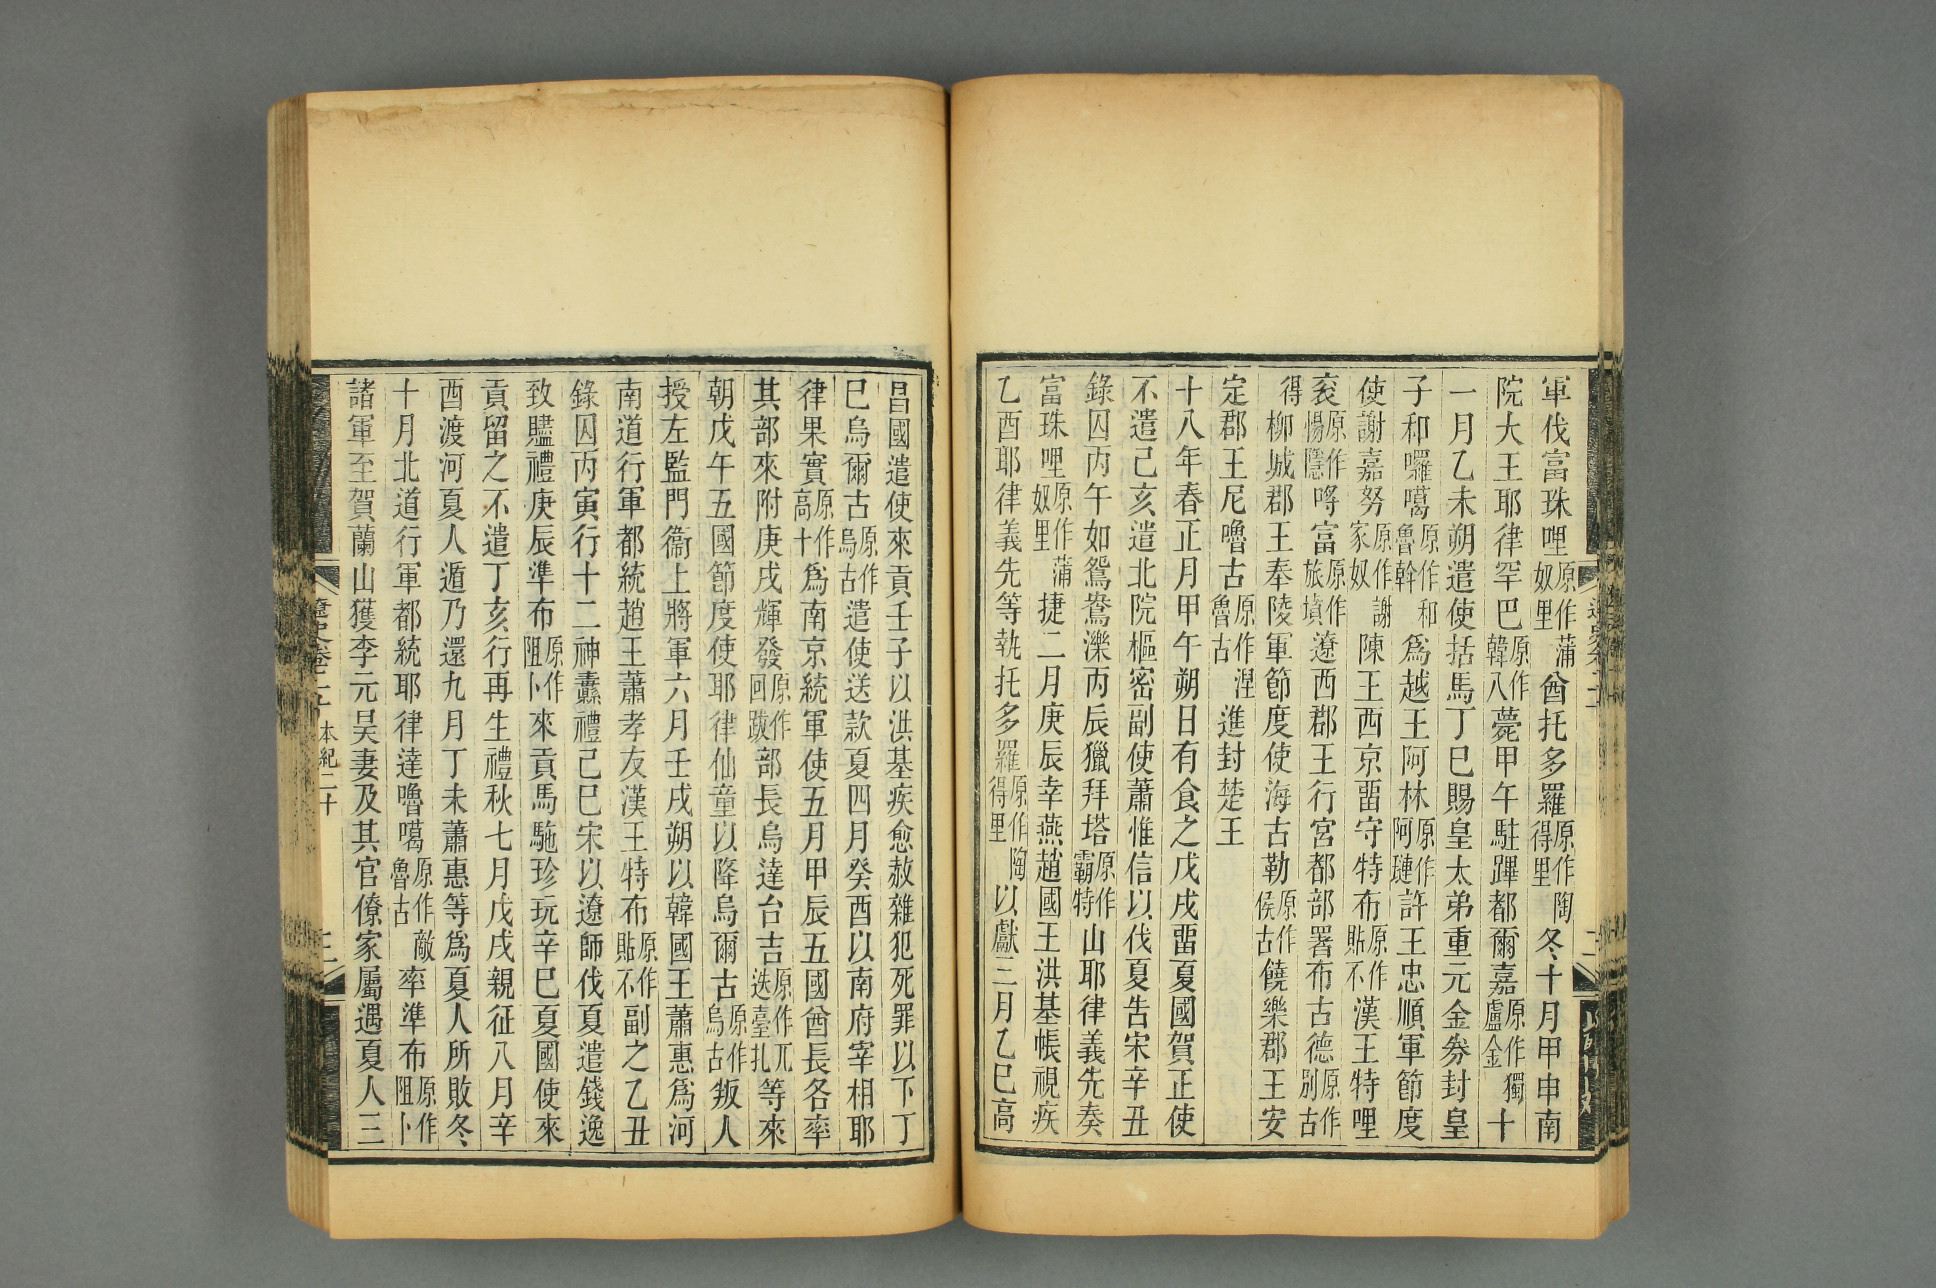 軍伐富珠哩原作蒲奴里酋托多羅原作陶得里冬十月甲申南
院大王耶律罕巴原作韓八薨甲午駐蹕都爾嘉原作獨盧金十
一月乙未朔遣使括馬丁巳賜皇太弟重元金劵封皇
子和囉噶原作和魯斡爲越王阿林原作阿璉許王忠順軍節度
使謝嘉努原作謝家奴陳王西京畱守特布原作貼不漢王特哩
衮原作惕隱哷富原作旅墳遼西郡王行宮都部署布古德原作別古
得柳城郡王奉陵軍節度使海古勒原作侯古饒樂郡王安
定郡王尼嚕古原作湼魯古進封楚王
十八年春正月甲午朔日有食之戊戌畱夏國賀正使
不遣己亥遣北院樞密副使蕭惟信以伐夏告宋辛丑
錄囚丙午如鴛鴦濼丙辰獵拜塔原作霸特山耶律義先奏
富珠哩原作蒲奴里捷二月庚辰幸燕趙國王洪基帳視疾
乙酉耶律義先等執托多羅原作陶得里以獻三月乙巳高
昌國遣使來貢壬子以洪基疾愈赦雜犯死罪以下丁
巳烏爾古原作烏古遣使送款夏四月癸酉以南府宰相耶
律果實原作高十爲南京統軍使五月甲辰五國酋長各率
其部來附庚戌輝發原作回跋部長烏達台吉原作兀迭臺扎等來
朝戊午五國節度使耶律仙童以降烏爾古原作烏古叛人
授左監門衞上將軍六月壬戌朔以韓國王蕭惠爲河
南道行軍都統趙王蕭孝友漢王特布原作貼不副之乙丑
錄囚丙寅行十二神纛禮己巳宋以遼師伐夏遣錢逸
致贐禮庚辰準布原作阻卜來貢馬駞珍玩辛巳夏國使來
貢留之不遣丁亥行再生禮秋七月戊戌親征八月辛
酉渡河夏人遁乃還九月丁未蕭惠等爲夏人所敗冬
十月北道行軍都統耶律達嚕噶原作敵魯古率準布原作阻卜
諸軍至賀蘭山獲李元吴妻及其官僚家屬遇夏人三
遼史卷二十 本紀二十 三